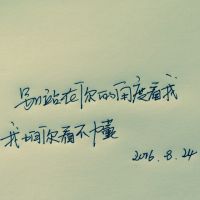 别站在你的角度看我
我怕你看不懂
2016.8.24